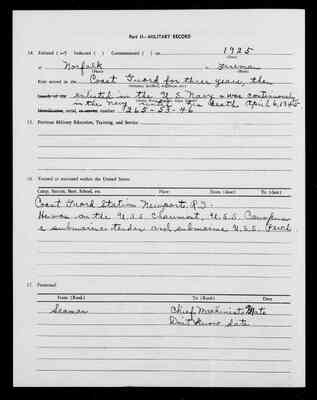 Part II—MILITARY RECORD
14. Enlisted (✓) Inducted ( ) Commissioned ( ) on 1925
(Date)
at Norfolk, Fireman
(Place) (Rank)
First served in the Coast Guard for three years, then
enlisted in the U.S. Navy & was continuously
in the Navy until his death April 6, 1945
number 265-53-46
15. Previous Military Education, Training, and Service
16. Trained or stationed within the United States:
Camp, Station, Base, School, etc. Place From (date) To (date)
Coast Guard Station Newport, R.I.
He was on the U.S.S. Chaumont, U.S.S. Canopus
a submarine tender and submarine U.S.S. Perch
17. Promoted:
From (Rank) To (Rank) Date
Seaman Chief Machinist Mate
Don't know date